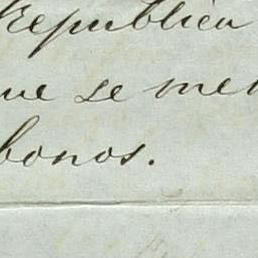 Republica
ue se me
bonos.